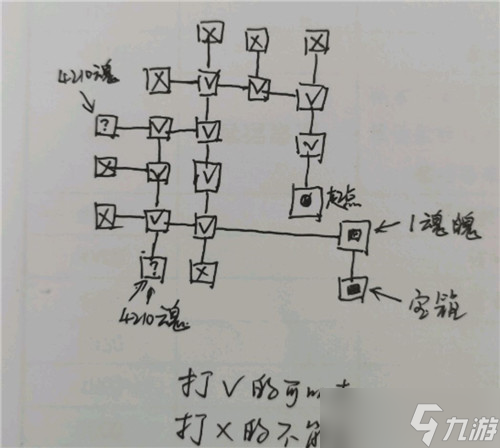 4210魂
?
起点
1魂魄
宝箱
?
4210魂
打V的可以
打X的不
九游